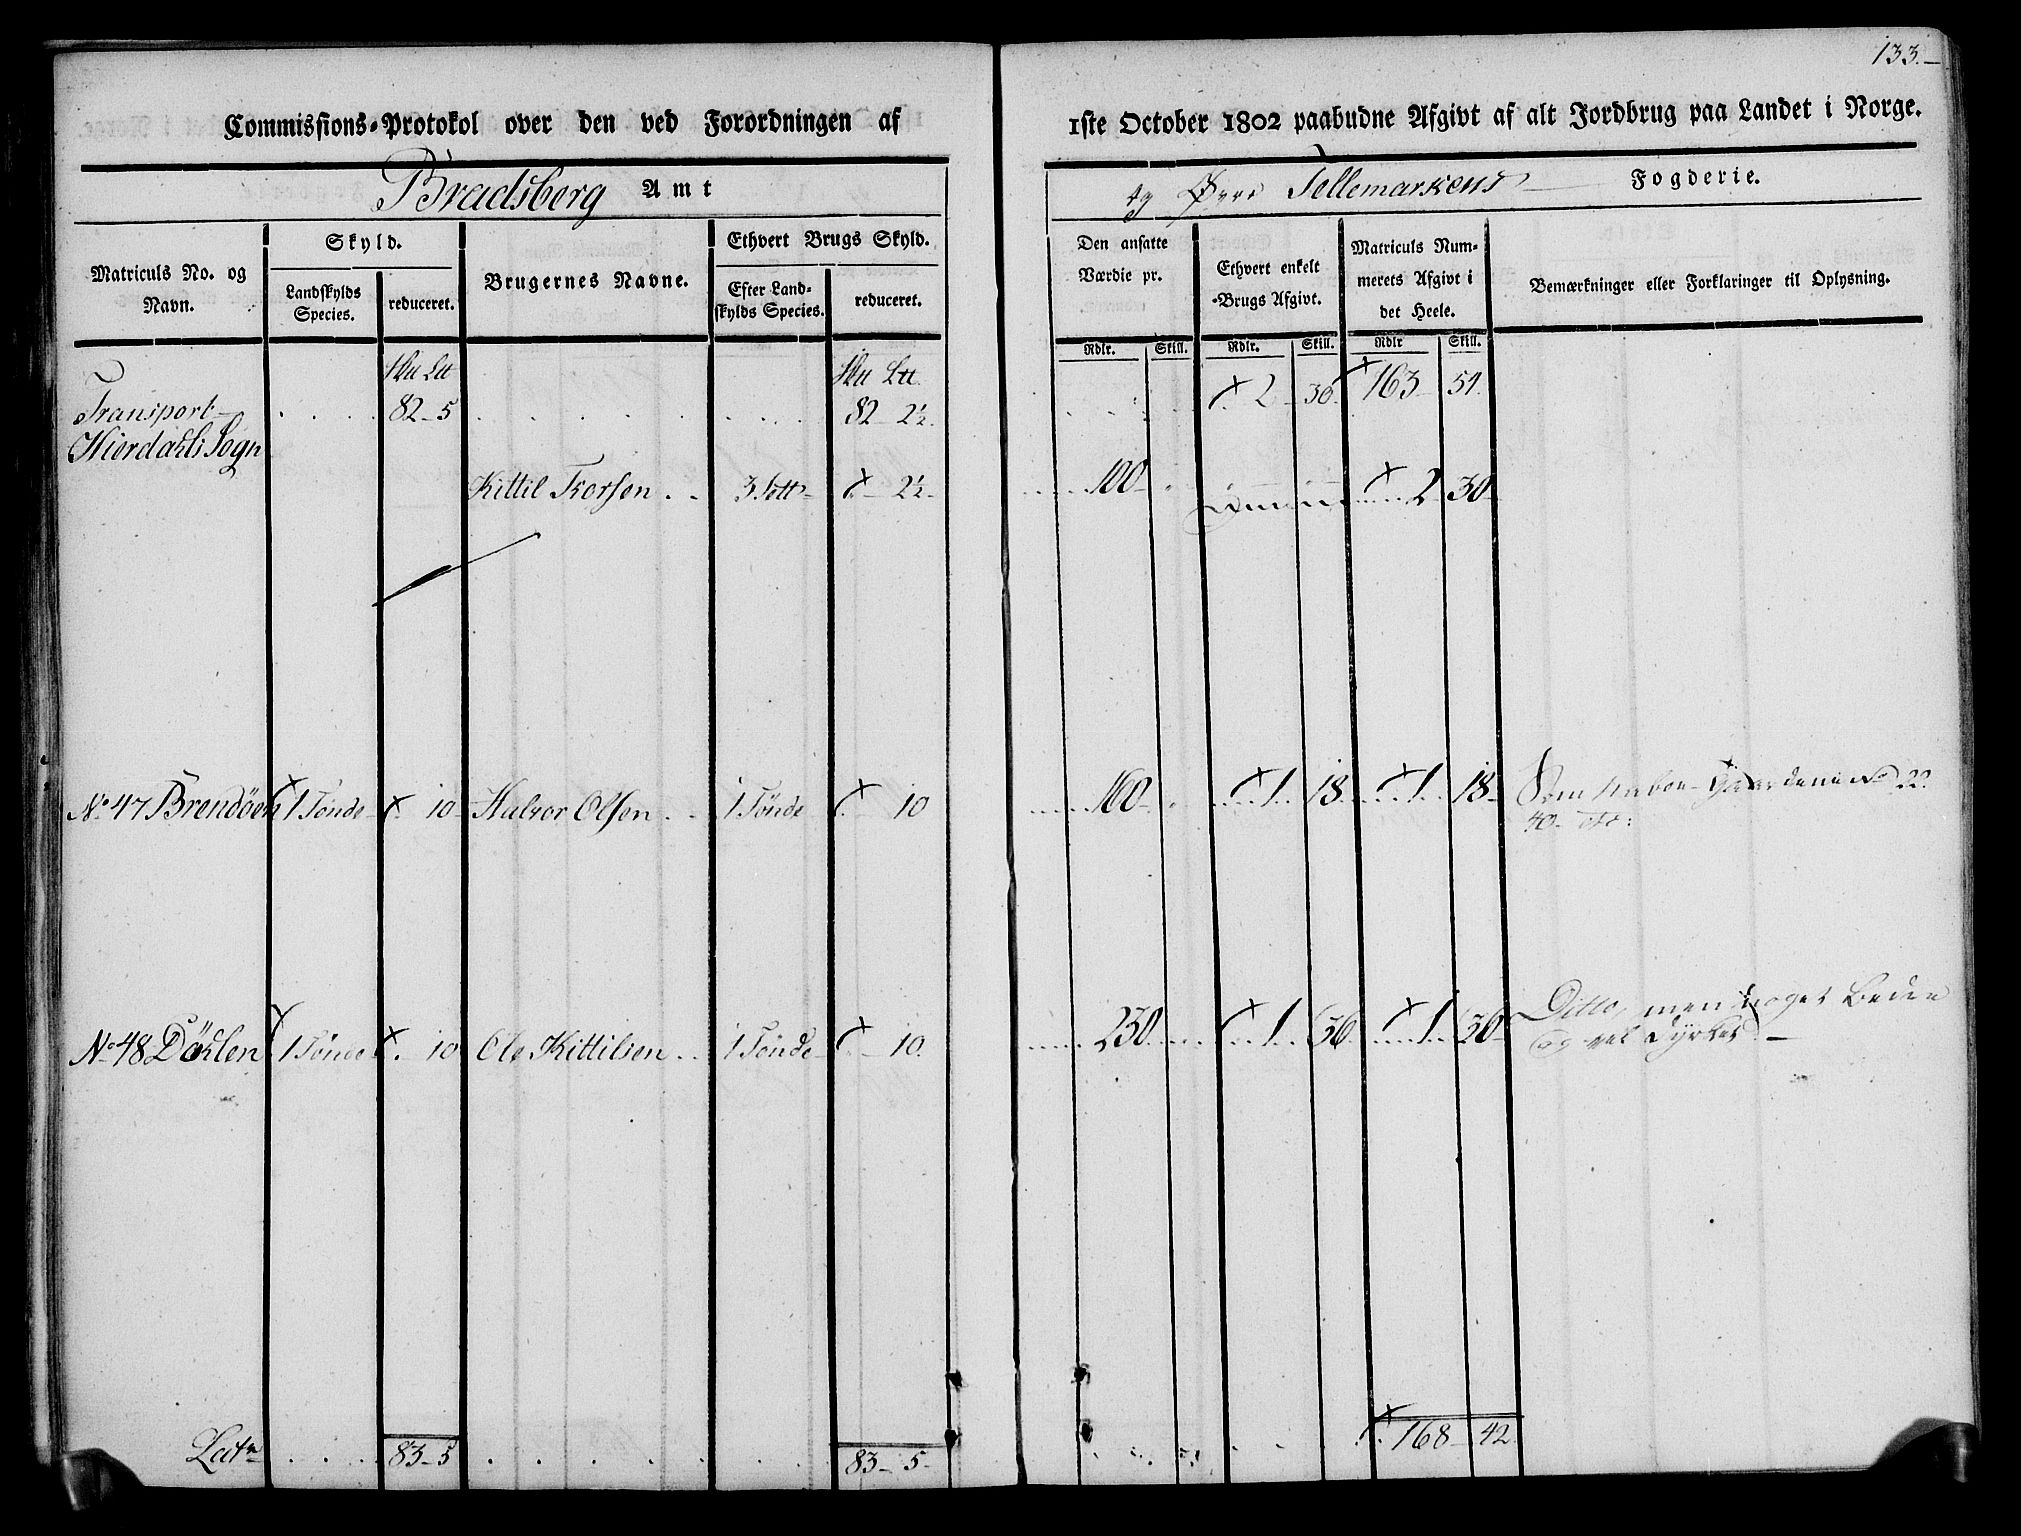 133.
Commissions-Protokol over den ved Forordningen af 1ste October 1802 paabudne Afgivt af alt Jordbrug paa Landet i Norge.
Bradsberg Amt og Øvre Tellemarkens Fogderie.
Matriculs No. og Navn.
Skyld.
Landskylds Species.
reduceret.
Brugernes Navne.
Ethvert Brugs Skyld.
Efter Landskylds Species.
reduceret.
Den ansatte Værdie pr.
Ethvert enkelt Brugs Afgivt.
Matriculs Nummerets Afgivt i det Heele.
Bemærkninger eller Forklaringer til Oplysning.
Rdlr. Skill. Rdlr. Skill. Rdlr Skill.
Transport 82 - 5 82 - 2½ 2 30 163 54
Hierdahls Sogn
Kittil Torsen 3 Sett 2½ 100 2 30
No 47 Brendøen 1 Tønde 10 Halvor Olsen 1 Tønde 10 160 1 18 1 18 Som Naboe Gaardene No 22
40
No 48 Döhlen 1 Tønde 10 Ole Kittilsen 1 Tønde 10 230 1 36 1 36 Ditto, men noget bedre
og vel dyrket
Latr 83 - 5 83 - 5 168 - 42